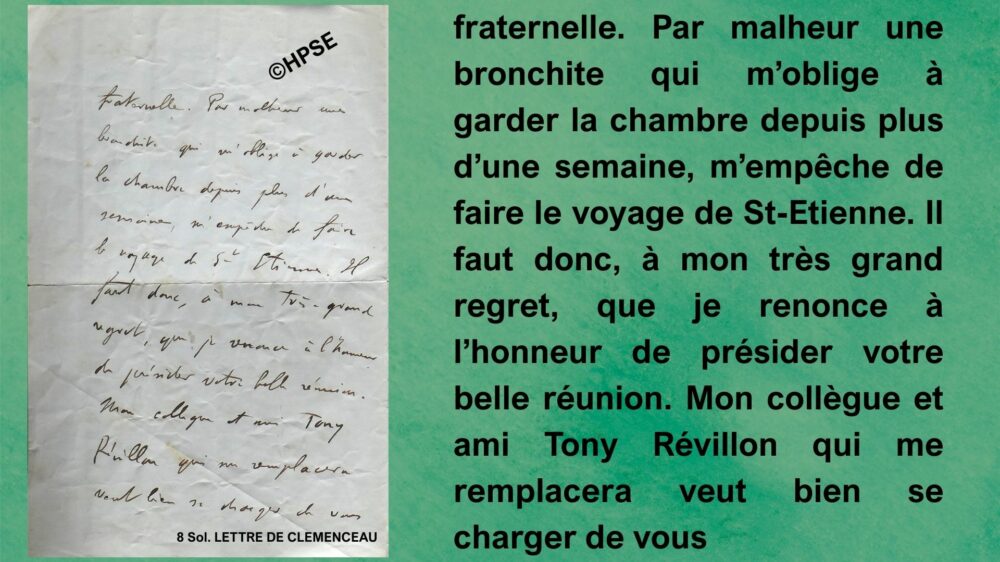 ©HPSE
fraternelle. Par malheur une
bronchite qui m'oblige à garder
la chambre depuis plus d'une
semaine, m'empêche de faire
le voyage de St Etienne. Il
faut donc, à mon très-grand
regret, que je renonce à l'honneur
de présider votre belle réunion.
Mon collègue et ami Tony
Révillon qui me remplacera
veut bien se charger de vous
8 Sol. LETTRE DE CLEMENCEAU
fraternelle. Par malheur une
bronchite qui m’oblige à
garder la chambre depuis plus
d’une semaine, m’empêche de
faire le voyage de St-Etienne. Il
faut donc, à mon très grand
regret, que je renonce à
l’honneur de présider votre
belle réunion. Mon collègue et
ami Tony Révillon qui me
remplacera veut bien se
charger de vous